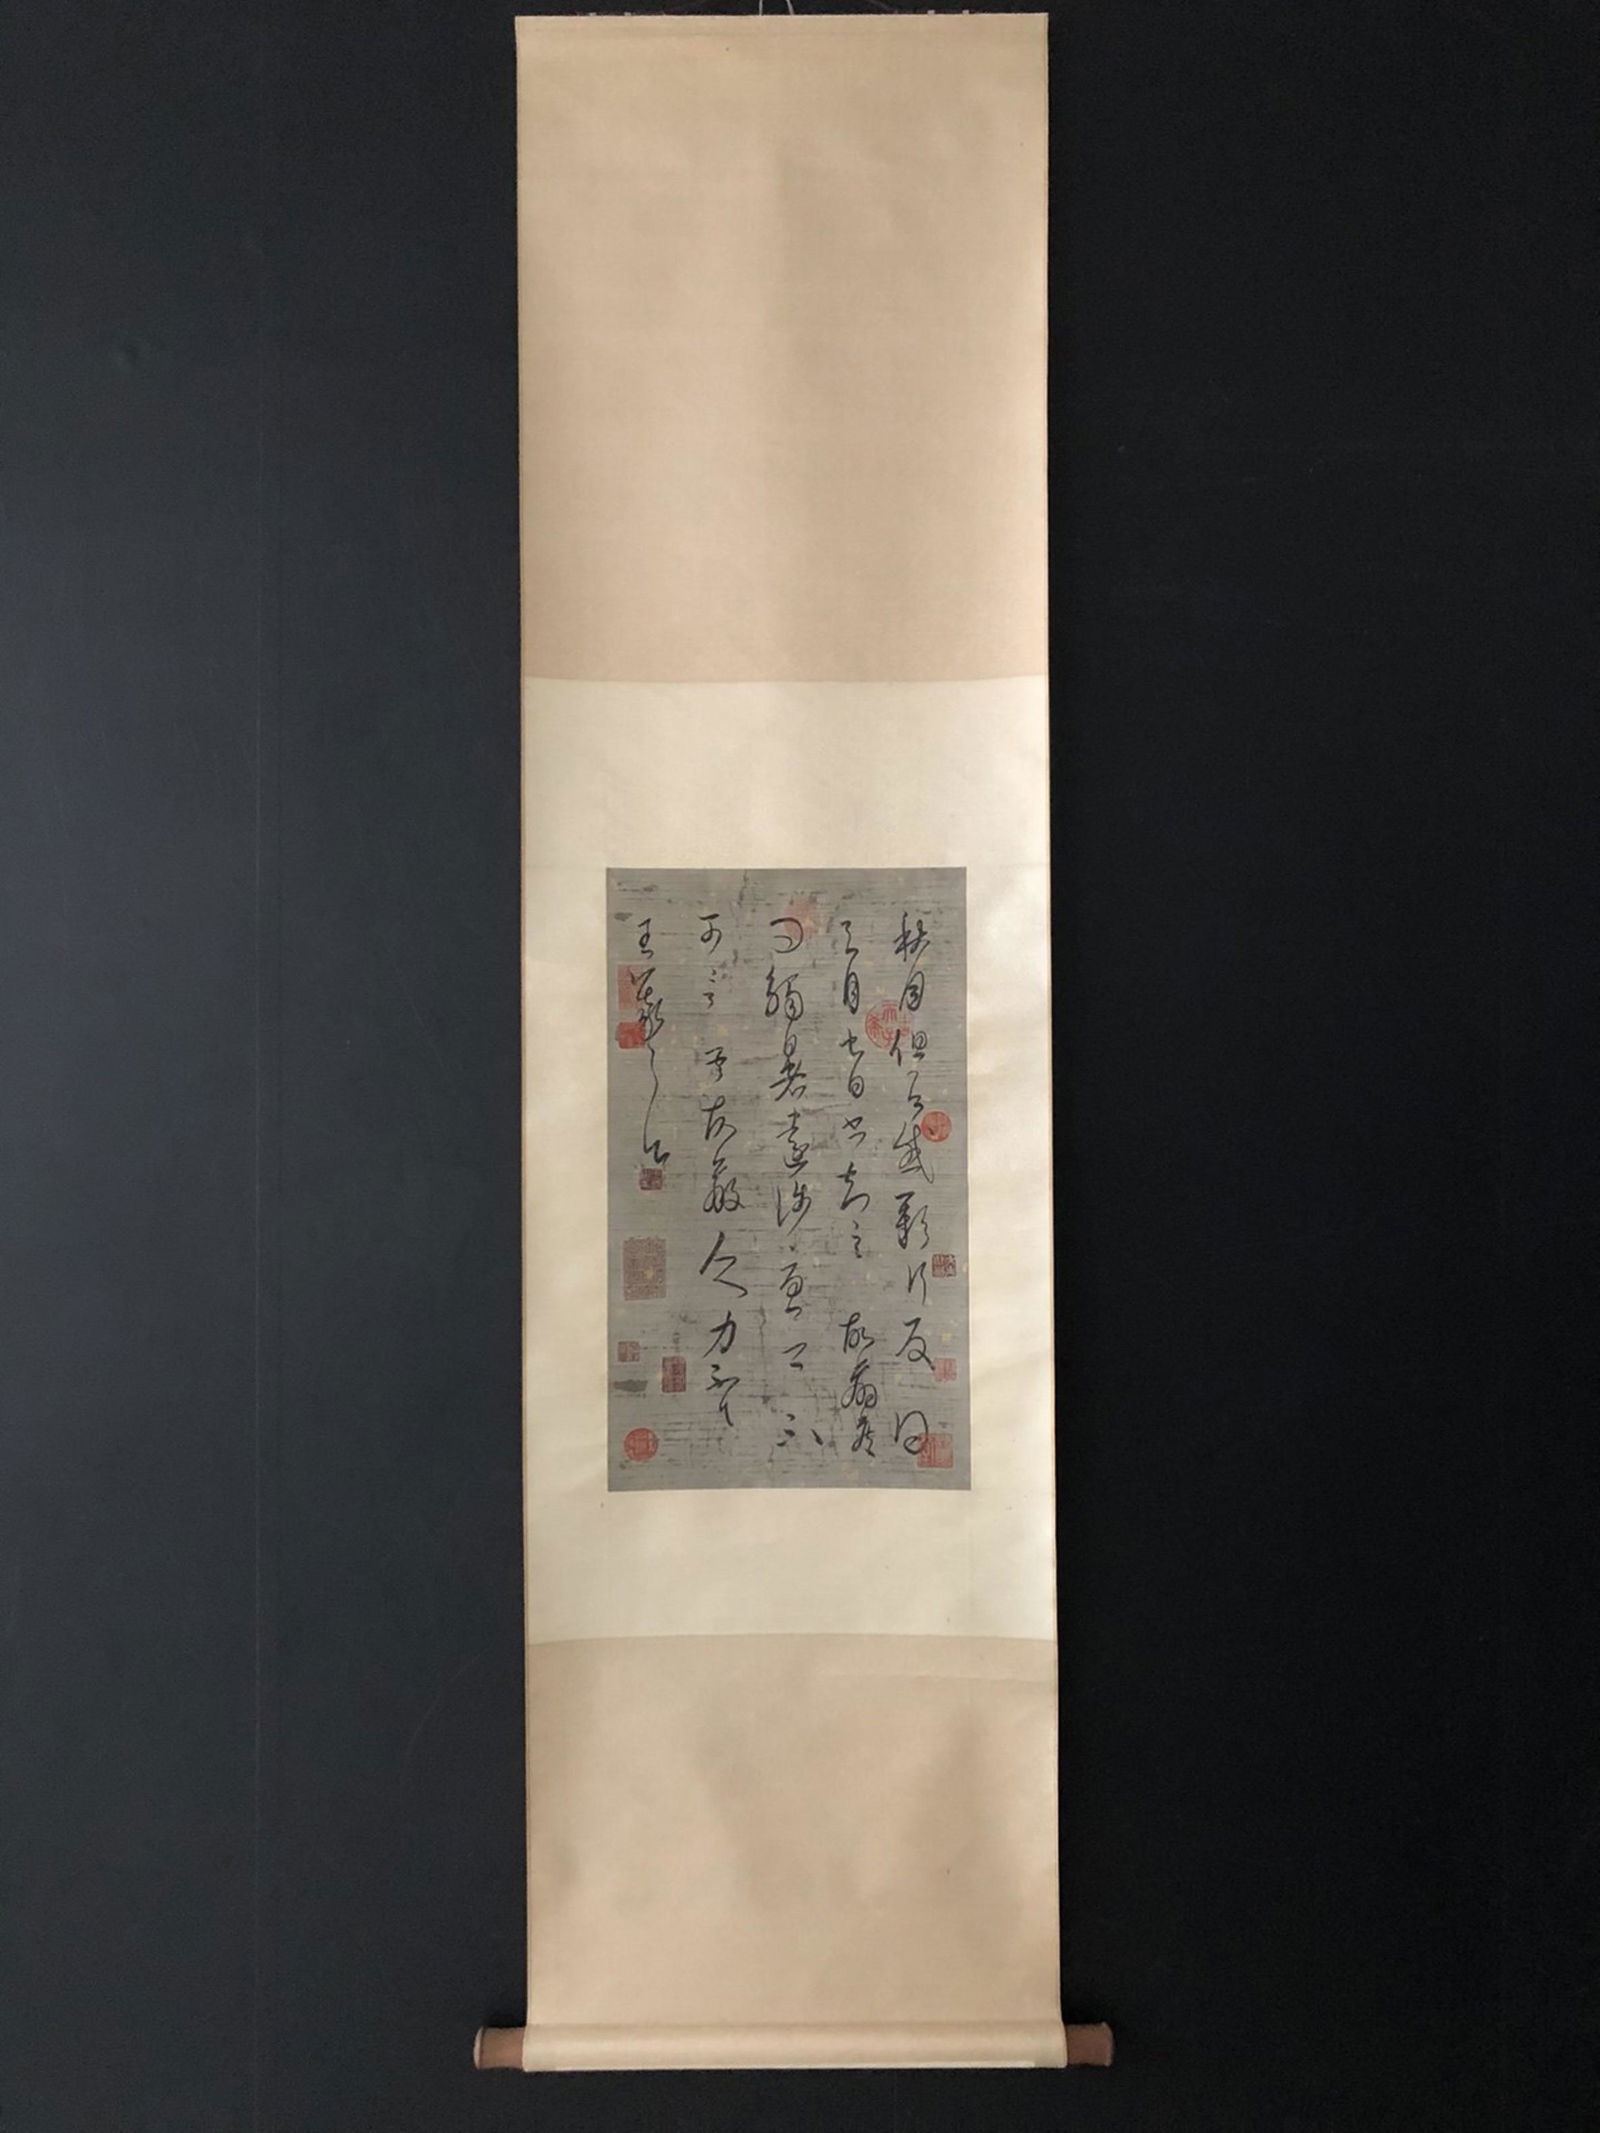 秋月但有感歎信反得
去月七日書知足下故羸疾
問觸暑遠涉憂卿不
可言吾故羸乏力不具
王羲之白
古希天子